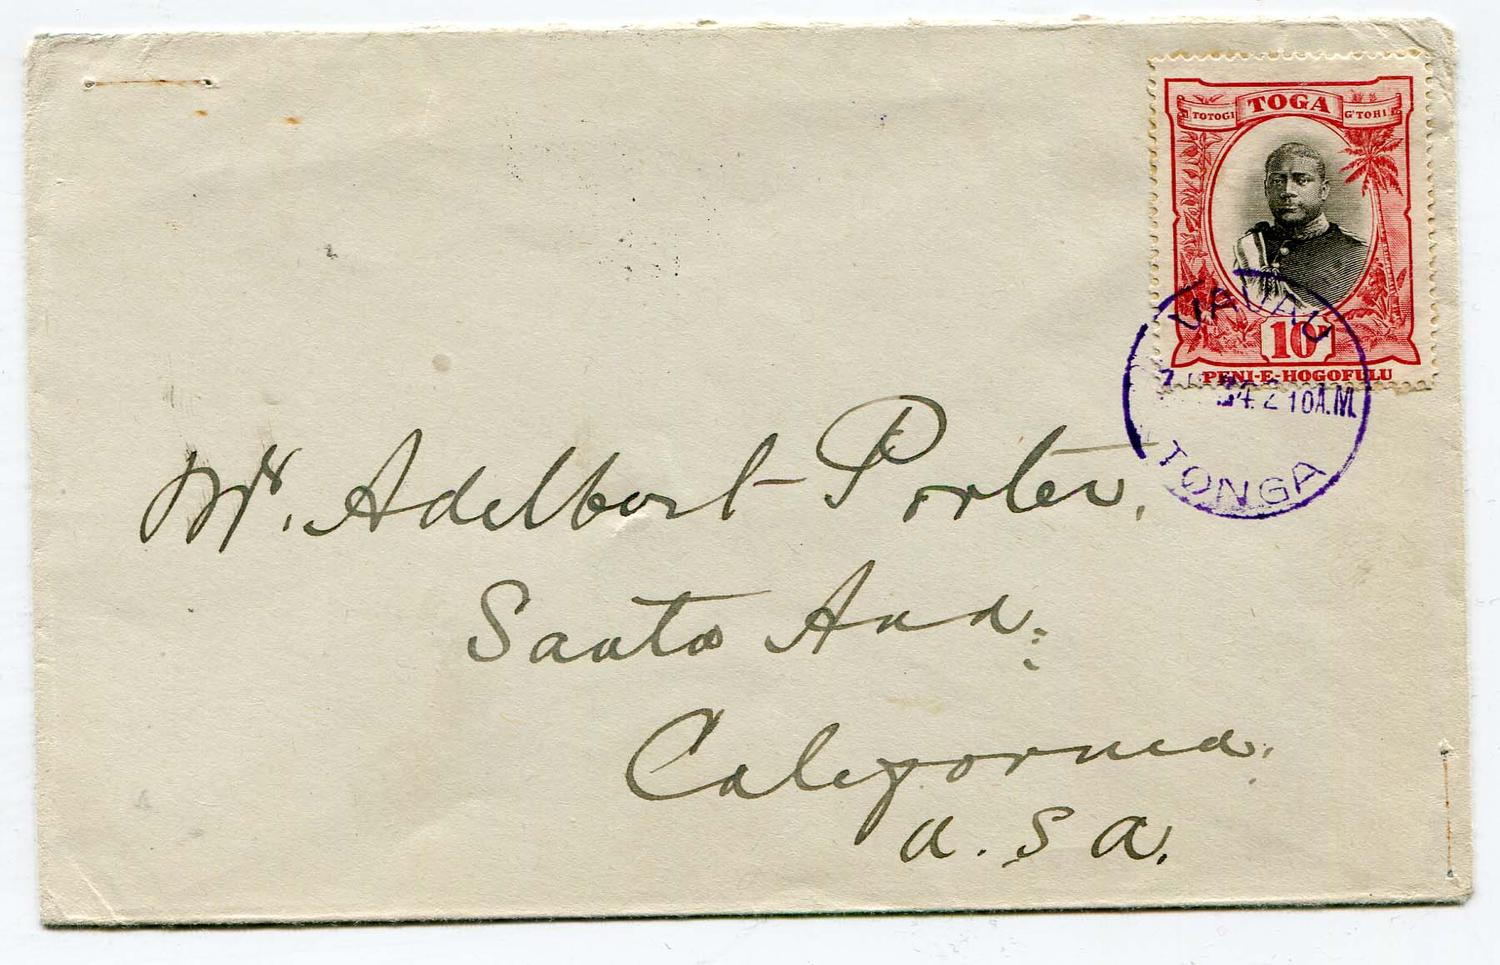 TOGA
TOTOGI G'TOHI
10D
PENI-E-HOGOFULU
VAVAU
10 A.M.
TONGA
Mr. Adelbert Porter,
Santa Ana,
California.
U.S.A.